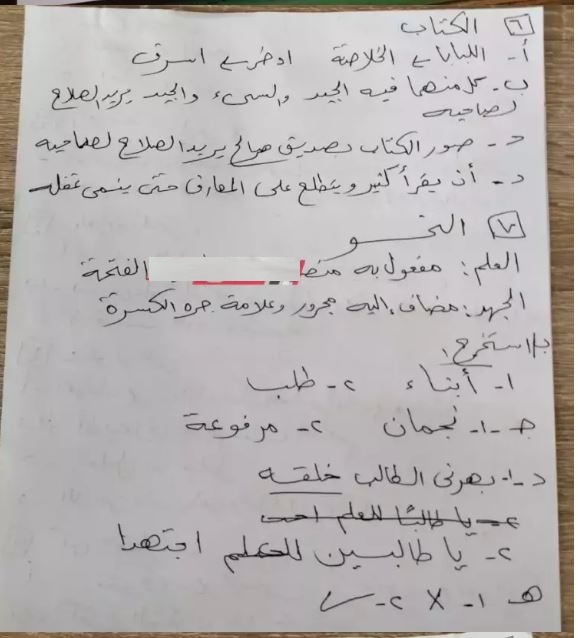 ٦ الكتاب
أ- اللباب الخلاصة ادخر اسرق
ب- كل منهما فيه الجيد والسىء والجيد يريد لصلاح
لصاحبه
ج- صور الكتاب بصديق صالح يريد الصلاح لصاحبه
د- أن يقرأ كثير ويطلع على المعارف حتى ينمى عقله
٧ النحو
العلم: مفعول به الفتحة
الجهد: مضاف إليه مجرور وعلامة جره الكسرة
ب/ استخرج:
١- أبناء ٢- طلب
ج- ١- نجمان ٢- مرفوعة
د- ١- بهرنى الطالب خلقه
٢- يا طالبًا للعلم
٢- يا طالبين للعلم اجتهدا
هـ ١- X ٢- ✓